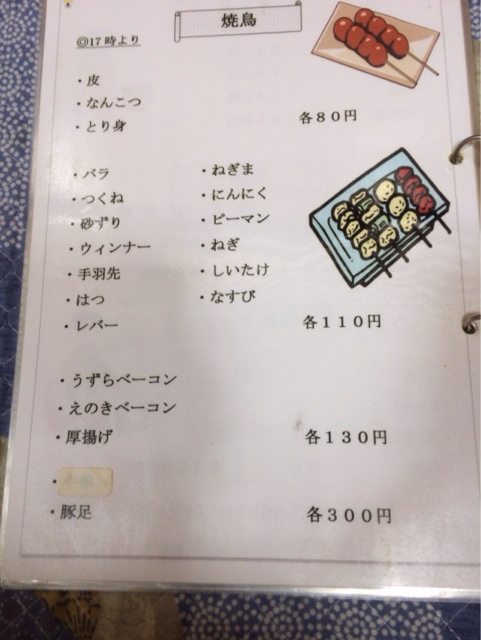 焼鳥
◎17時より
・皮
・なんこつ
・とり身
各80円
・バラ
・つくね
・砂ずり
・ウィンナー
・手羽先
・はつ
・レバー
・ねぎま
・にんにく
・ピーマン
・ねぎ
・しいたけ
・なすび
各110円
・うずらベーコン
・えのきベーコン
・厚揚げ
各130円
・
・豚足
各300円